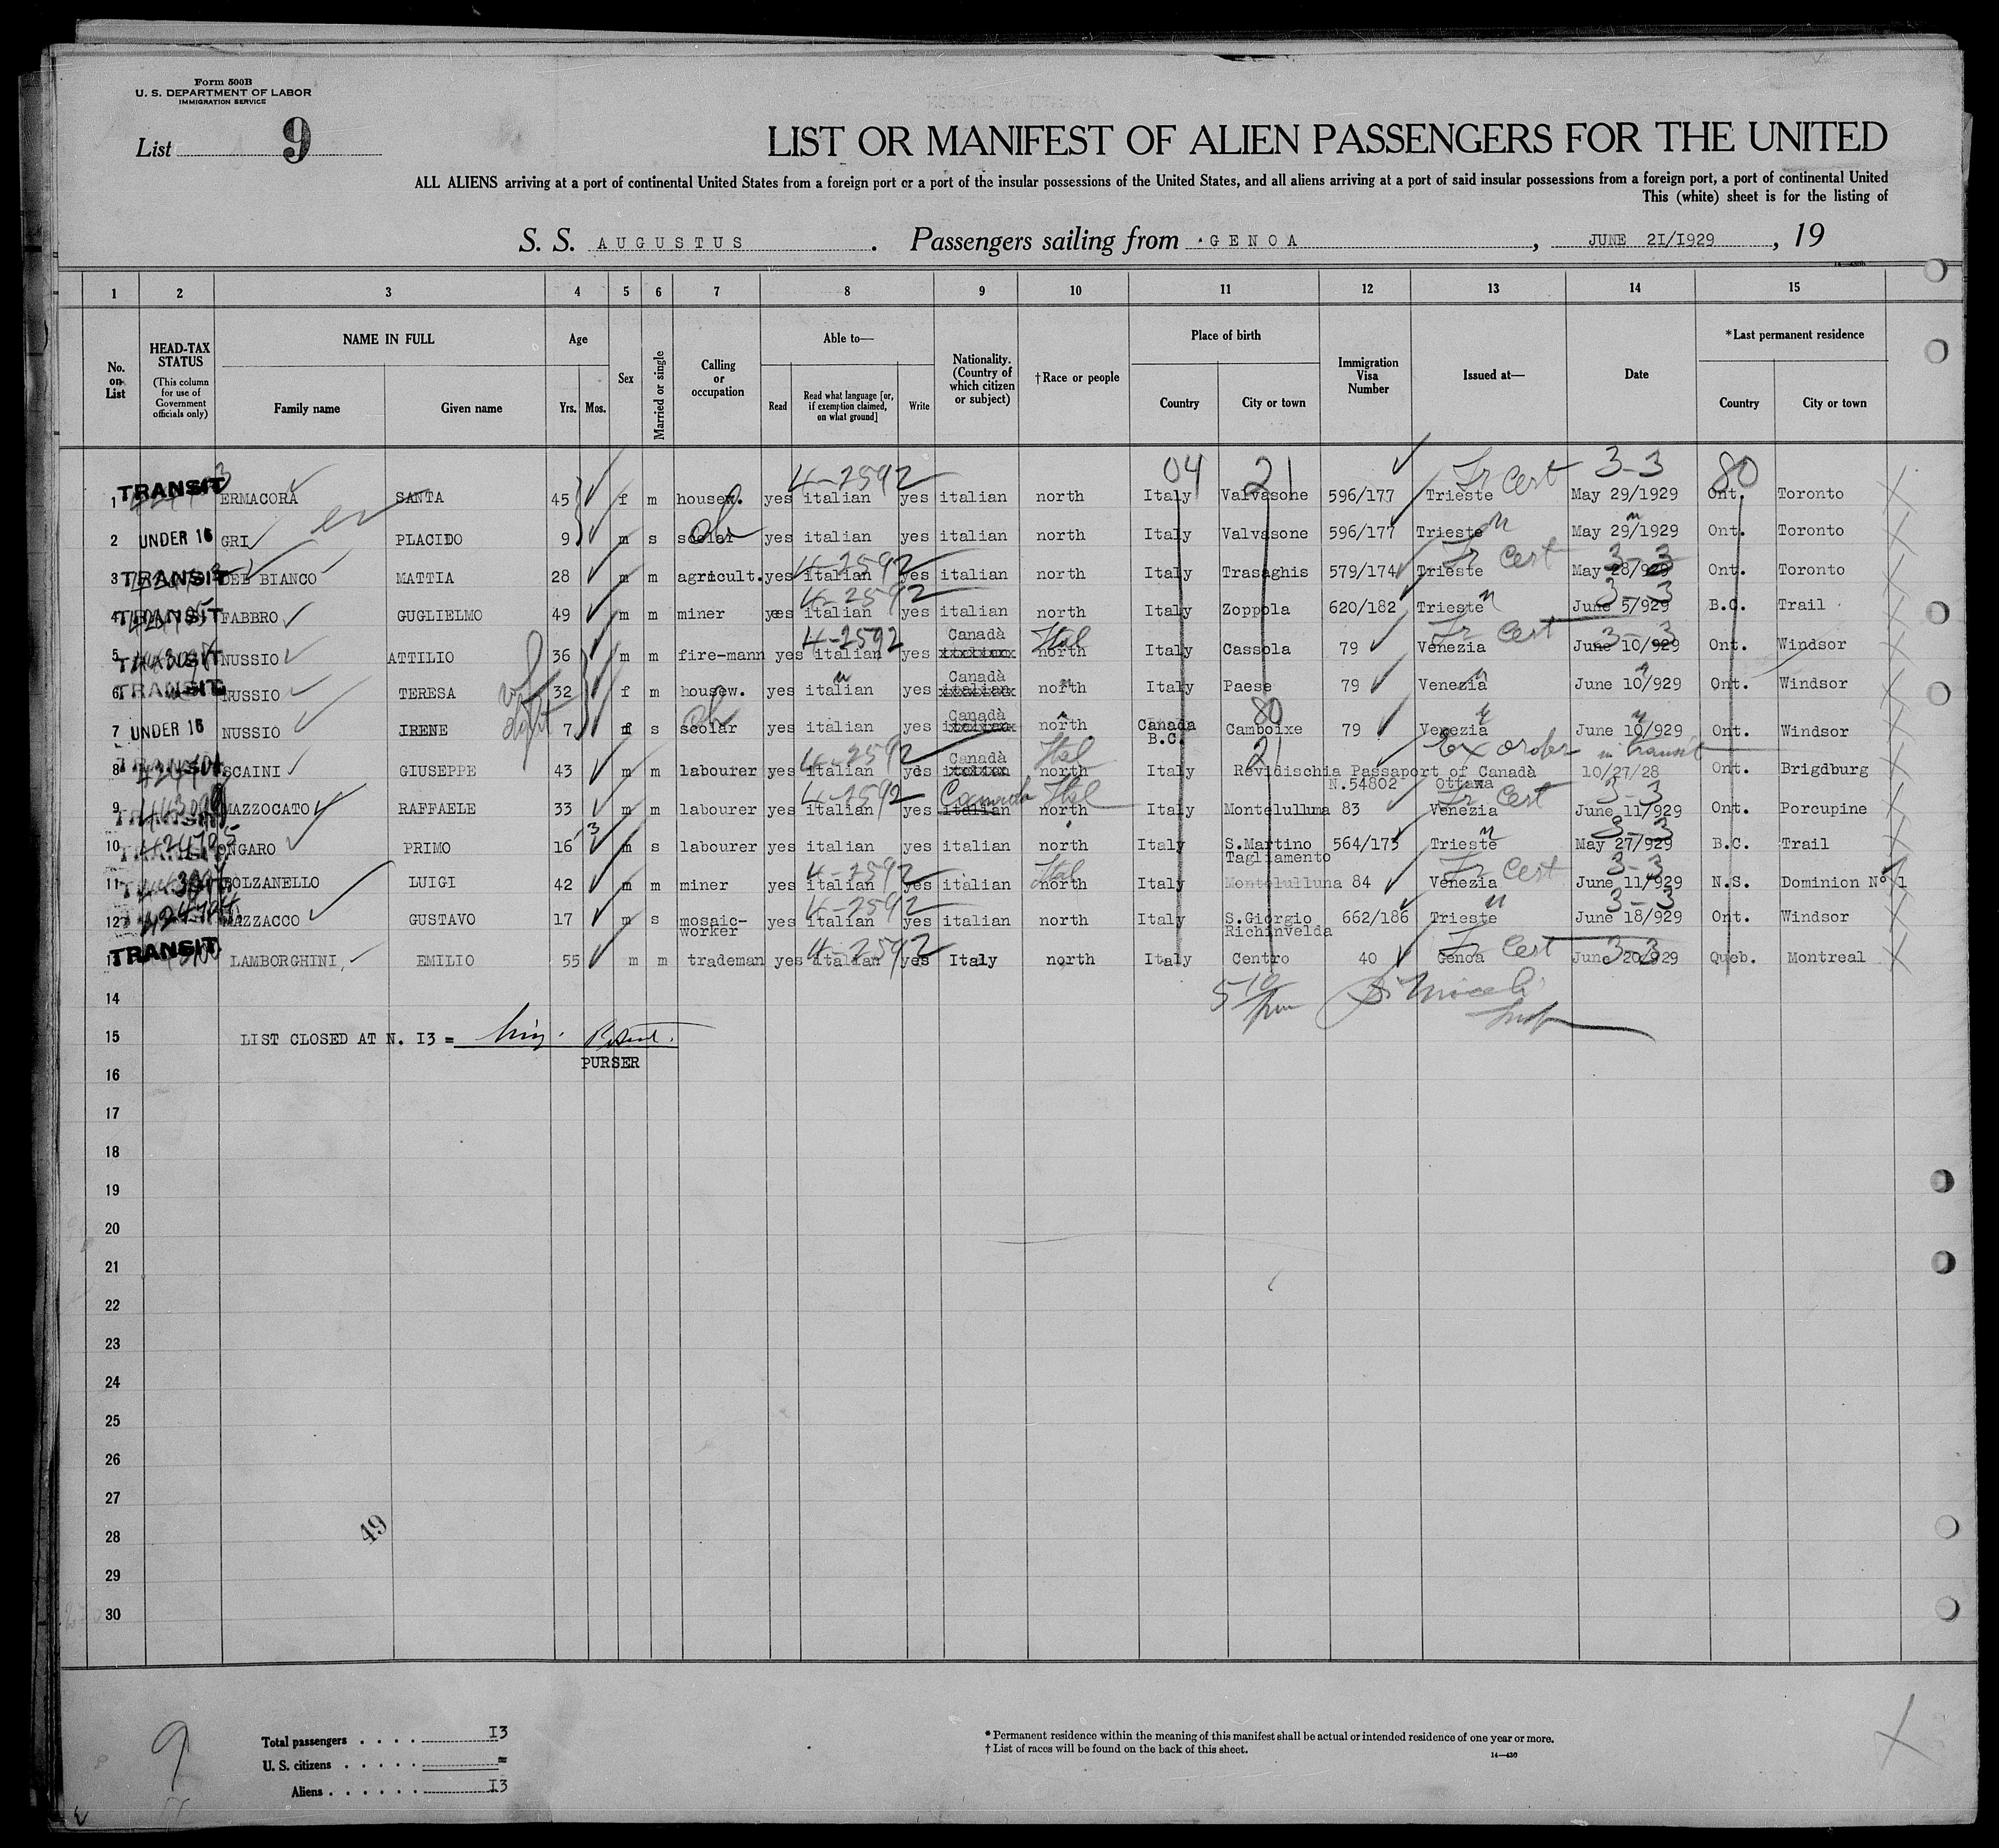 Form 500B
U. S. DEPARTMENT OF LABOR
IMMIGRATION SERVICE
List 9
LIST OR MANIFEST OF ALIEN PASSENGERS FOR THE UNITED
ALL ALIENS arriving at a port of continental United States from a foreign port or a port of the insular possessions of the United States, and all aliens arriving at a port of said insular possessions from a foreign port, a port of continental United
This (white) sheet is for the listing of
S. S. AUGUSTUS . Passengers sailing from GENOA , JUNE 21/1929 , 19
1 2 3 4 5 6 7 8 9 10 11 12 13 14 15
No. on List
HEAD-TAX STATUS (This column for use of Government officials only)
NAME IN FULL Family name Given name
Age Yrs. Mos.
Sex
Married or single
Calling or occupation
Able to— Read Read what language [or, if exemption claimed, on what ground] Write
Nationality. (Country of which citizen or subject)
†Race or people
Place of birth Country City or town
Immigration Visa Number
Issued at—
Date
*Last permanent residence Country City or town
4-2592 04 21 Tr Cert 3-3 80
1 TRANSIT ERMACORA SANTA 45 f m housew. yes italian yes italian north Italy Valvasone 596/177 Trieste May 29/1929 Ont. Toronto
2 UNDER 16 GRI PLACIDO 9 m s scolar yes italian yes italian north Italy Valvasone 596/177 Trieste May 29/1929 Ont. Toronto
4-2592 Tr Cert 3-3
3 TRANSIT DEL BIANCO MATTIA 28 m m agricult. yes italian yes italian north Italy Trasaghis 579/174 Trieste May 28/929 Ont. Toronto
4-2592 3-3
4 TRANSIT FABBRO GUGLIELMO 49 m m miner yes italian yes italian north Italy Zoppola 620/182 Trieste June 5/929 B.C. Trail
4-2592 Canadà Ital Tr Cert 3-3
5 TRANSIT NUSSIO ATTILIO 36 m m fire-mann yes italian yes north Italy Cassola 79 Venezia June 10/929 Ont. Windsor
Canadà
6 TRANSIT NUSSIO TERESA 32 f m housew. yes italian yes italian north Italy Paese 79 Venezia June 10/929 Ont. Windsor
Canadà 80
7 UNDER 16 NUSSIO IRENE 7 f s scolar yes italian yes north Canada B.C. Camboixe 79 Venezia June 10/929 Ont. Windsor
4-2592 Canadà Ital 21 Ex order in transit
8 TRANSIT SCAINI GIUSEPPE 43 m m labourer yes italian yes north Italy Revidischia Passaport of Canadà 10/27/28 Ont. Brigdburg
N.54802 Ottawa
4-2592 Canada Ital Tr Cert 3-3
9 TRANSIT MAZZOCATO RAFFAELE 33 m m labourer yes italian yes italian north Italy Montelulluna 83 Venezia June 11/929 Ont. Porcupine
3 3-3
10 TRANSIT ONGARO PRIMO 16 m s labourer yes italian yes italian north Italy S.Martino Tagliamento 564/173 Trieste May 27/929 B.C. Trail
4-2592 Ital Tr Cert 3-3
11 BOLZANELLO LUIGI 42 m m miner yes italian yes italian north Italy Montelulluna 84 Venezia June 11/929 N.S. Dominion No 1
4-2592 3-3
12 MAZZACCO GUSTAVO 17 m s mosaic-worker yes italian yes italian north Italy S.Giorgio Richinvelda 662/186 Trieste June 18/929 Ont. Windsor
4-2592 Tr Cert 3-3
TRANSIT LAMBORGHINI EMILIO 55 m m trademan yes italian yes Italy north Italy Centro 40 Genoa June 20/929 Queb. Montreal
14
15 LIST CLOSED AT N. I3 =
PURSER
16
17
18
19
20
21
22
23
24
25
26
27
28
49
29
30
9
Total passengers . . . . I3
U. S. citizens . . . . . =
Aliens . . . . . . I3
* Permanent residence within the meaning of this manifest shall be actual or intended residence of one year or more.
† List of races will be found on the back of this sheet.
14—430